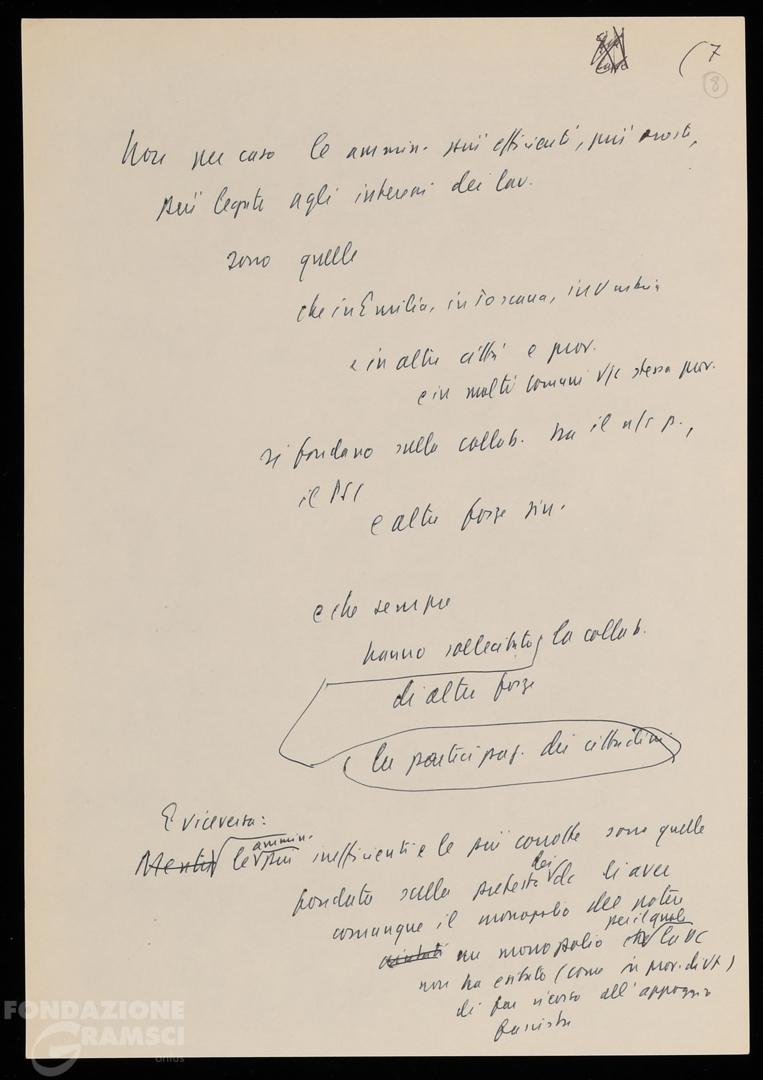 ( 7
8
Non per caso le ammin. più efficienti, più oneste,
più legate agli interessi dei lav.
sono quelle
che in Emilia, in Toscana, in Umbria
e in altre città e prov.
e in molti comuni v/s stessa prov.
si fondano sulla collab. tra il n/s p.,
il PSI
e altre forze sin.
e che sempre
hanno sollecitato la collab.
di altre forze
la partecipaz. dei cittadini
E viceversa:
ammin.
Mentre le più inefficienti e le più corrotte sono quelle
fondate sulla pretesa dei dc di aver
comunque il monopolio del potere
per il quale
un monopolio che la DC
non ha esitato (come in prov. di VT)
di far ricorso all'appoggio
fascista
FONDAZIONE
GRAMSCI
onlus